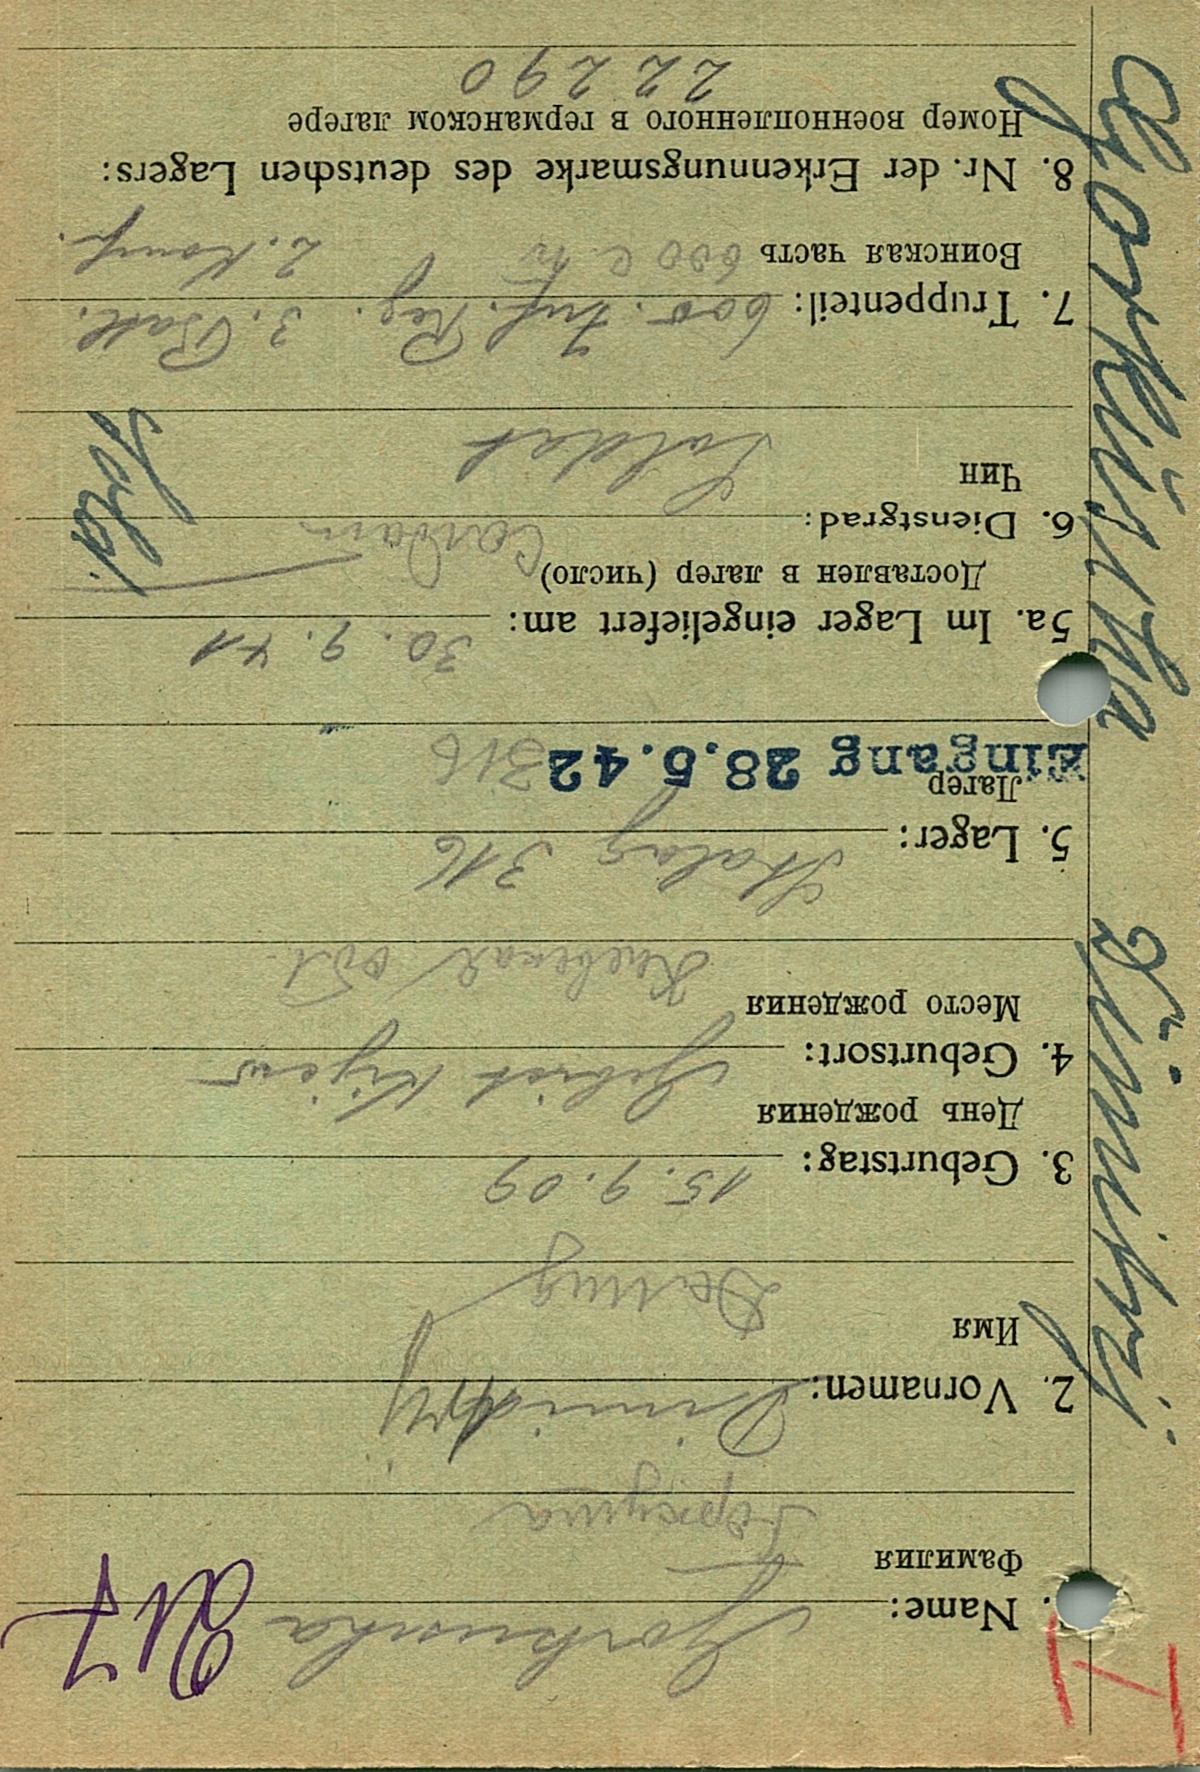 1. Name: Gorkuscha
Фамилия Горкуша
2. Vornamen: Dimitrij
Имя
3. Geburtstag: 15.9.09
День рождения
4. Geburtsort: Gebiet Kijew
Место рождения
5. Lager: Stalag 316
Лагер 316
Eingang 28.5.42
5a. Im Lager eingeliefert am: 30.9.41
Доставлен в лагер (число)
6. Dienstgrad: Солдат
Чин Soldat
Sold.
7. Truppenteil: 600. Inf. Reg. 3. Batl.
Воинская часть 600 с.п. 2. Komp.
8. Nr. der Erkennungsmarke des deutschen Lagers:
Номер военнопленного в германском лагере
22290
Dimitrij